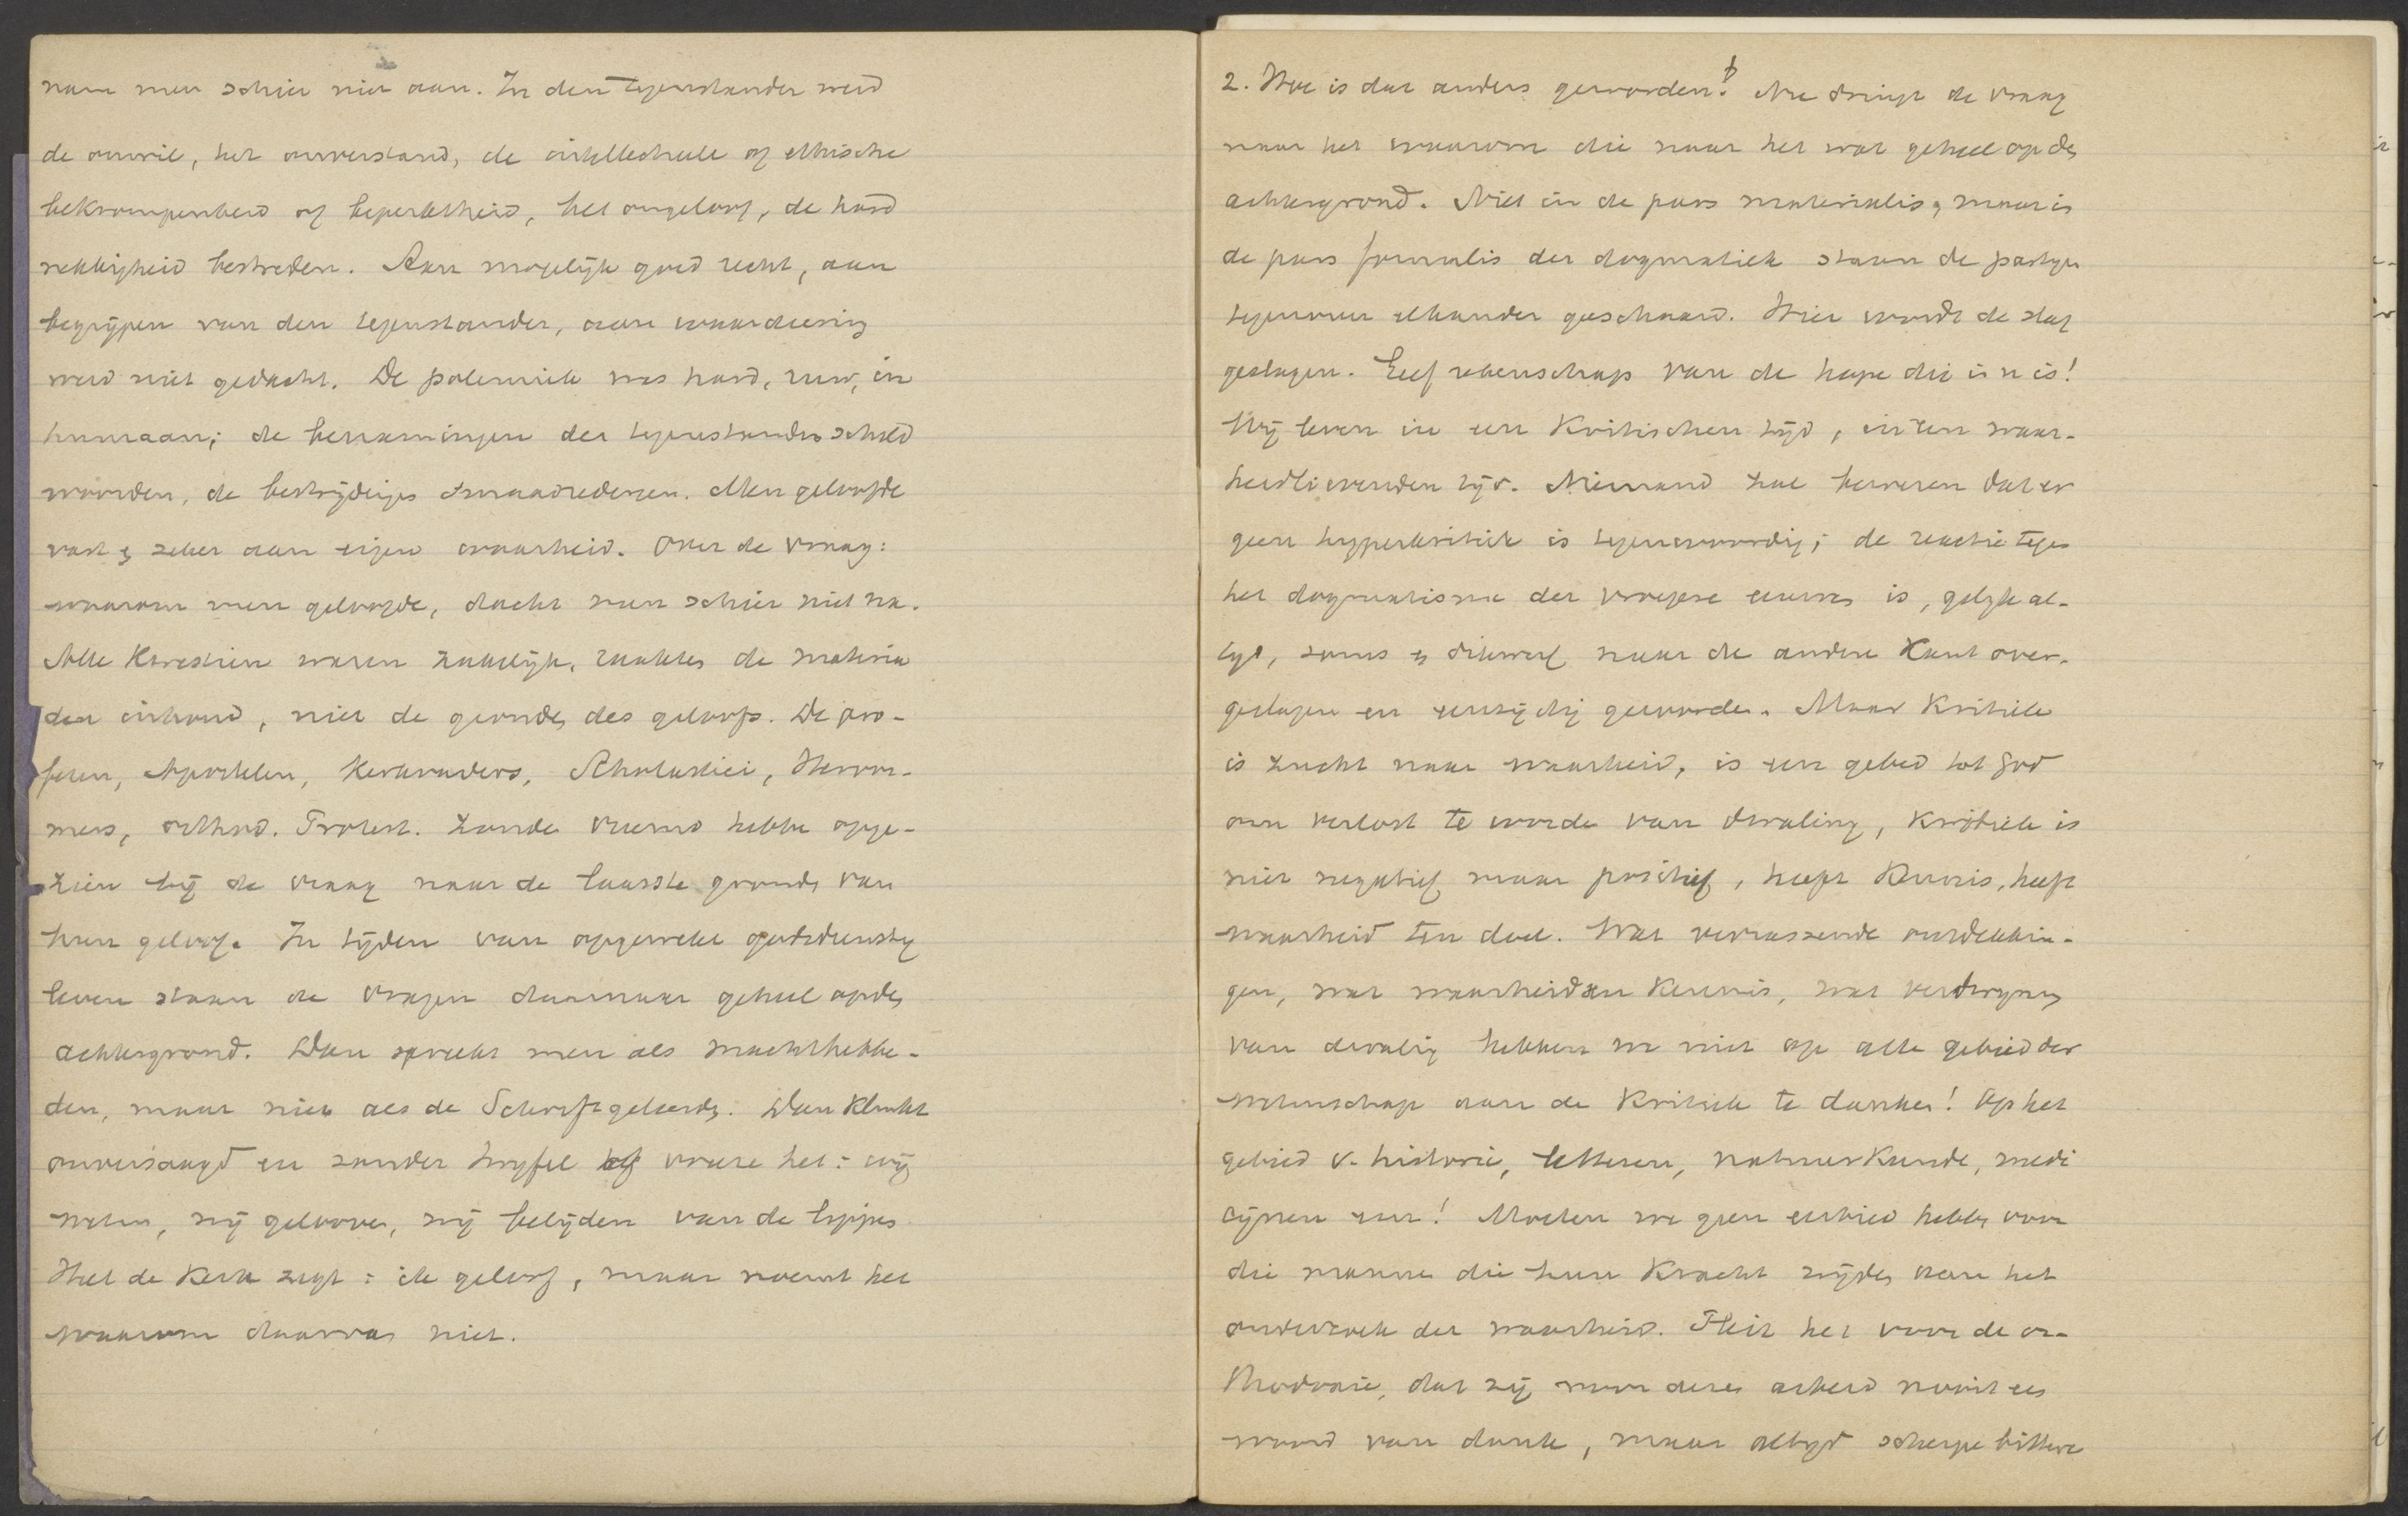 nam men schier niet aan. In den tegenstander werd
de onwil, het onverstand, de intellectuele of ethische
bekrompenheid of beperktheid, het ongeloof, de hard
nekkigheid bestreden. Aan mogelijk goed recht, aan
begrijpen van den tegenstander, aan waardeering
werd niet gedacht. De polemiek was hard, ruw, in
humaan; de benamingen der tegenstanders scheld
woorden, de bestrijdings smaadredenen. Men geloofde
vast en zeker aan eigen waarheid. Over de vraag:
waarom men geloofde, dacht men schier niet na.
Alle kwestien waren zakelijk, raakten de materia
den inhoud, niet de gronden des geloofs. De pro-
feten, Apostelen, Kerkvaders, Scholastici, Hervor-
mers, orthod. Protest. zouden vreemd hebben opge-
zien bij de vraag naar de laatste gronden van
hun geloof. In tijden van opgewekt godsdienstig
leven staan de vragen daarnaar geheel op den
achtergrond. Dan spreekt men als machthebben-
den, maar niet als de Schriftgeleerden. Dan klinkt
onversaagd en zonder twijfel voore het: wij
weten, wij gelooven, wij belijden van de lippen
Heel de Kerk zegt: ik geloof, maar noemt het
waarom daarvan niet.
2. Hoe is dat anders geworden! Nu dringt de vraag
naar het waarom die naar het wat geheel op den
achtergrond. Niet in de pars materialis, maar in
de pars formalis der dogmatiek staan de partijen
tegenover elkander geschaard. Hier wordt de slag
geslagen. Geef rekenschap van de hope die in u is!
Wij leven in een kritischen tijd, in een waar-
heidlievenden tijd. Niemand zal beweren dat er
geen hyperkritiek is tegenwoordig; de reactie tegen
het dogmatisme der vroegere eeuwen is, gelijk al-
tijd, soms en dikwerf naar de andere kant over-
geslagen en eenzijdig geworden. Maar Kritiek
is zucht naar waarheid, is een gebed tot God
om verlost te worden van dwaling, Kritiek is
niet negatief maar positief, heeft Kennis, heeft
waarheid ten doel. Wat verrassende ontdekkin-
gen, wat waarheid en Kennis, wat verdwijnen
van dwaling hebben we niet op alle gebied der
wetenschap aan de Kritiek te danken! Op het
gebied v. historie, letteren, natuurkunde, medi
cijnen enz! Moeten we geen eerbied hebben voor
die mannen die hun Kracht wijden aan het
onderzoek der waarheid. Pleit het voor de or-
thodoxie, dat zij voor dezen arbeid nooit een
woord van dank, maar altijd scherpe bittere